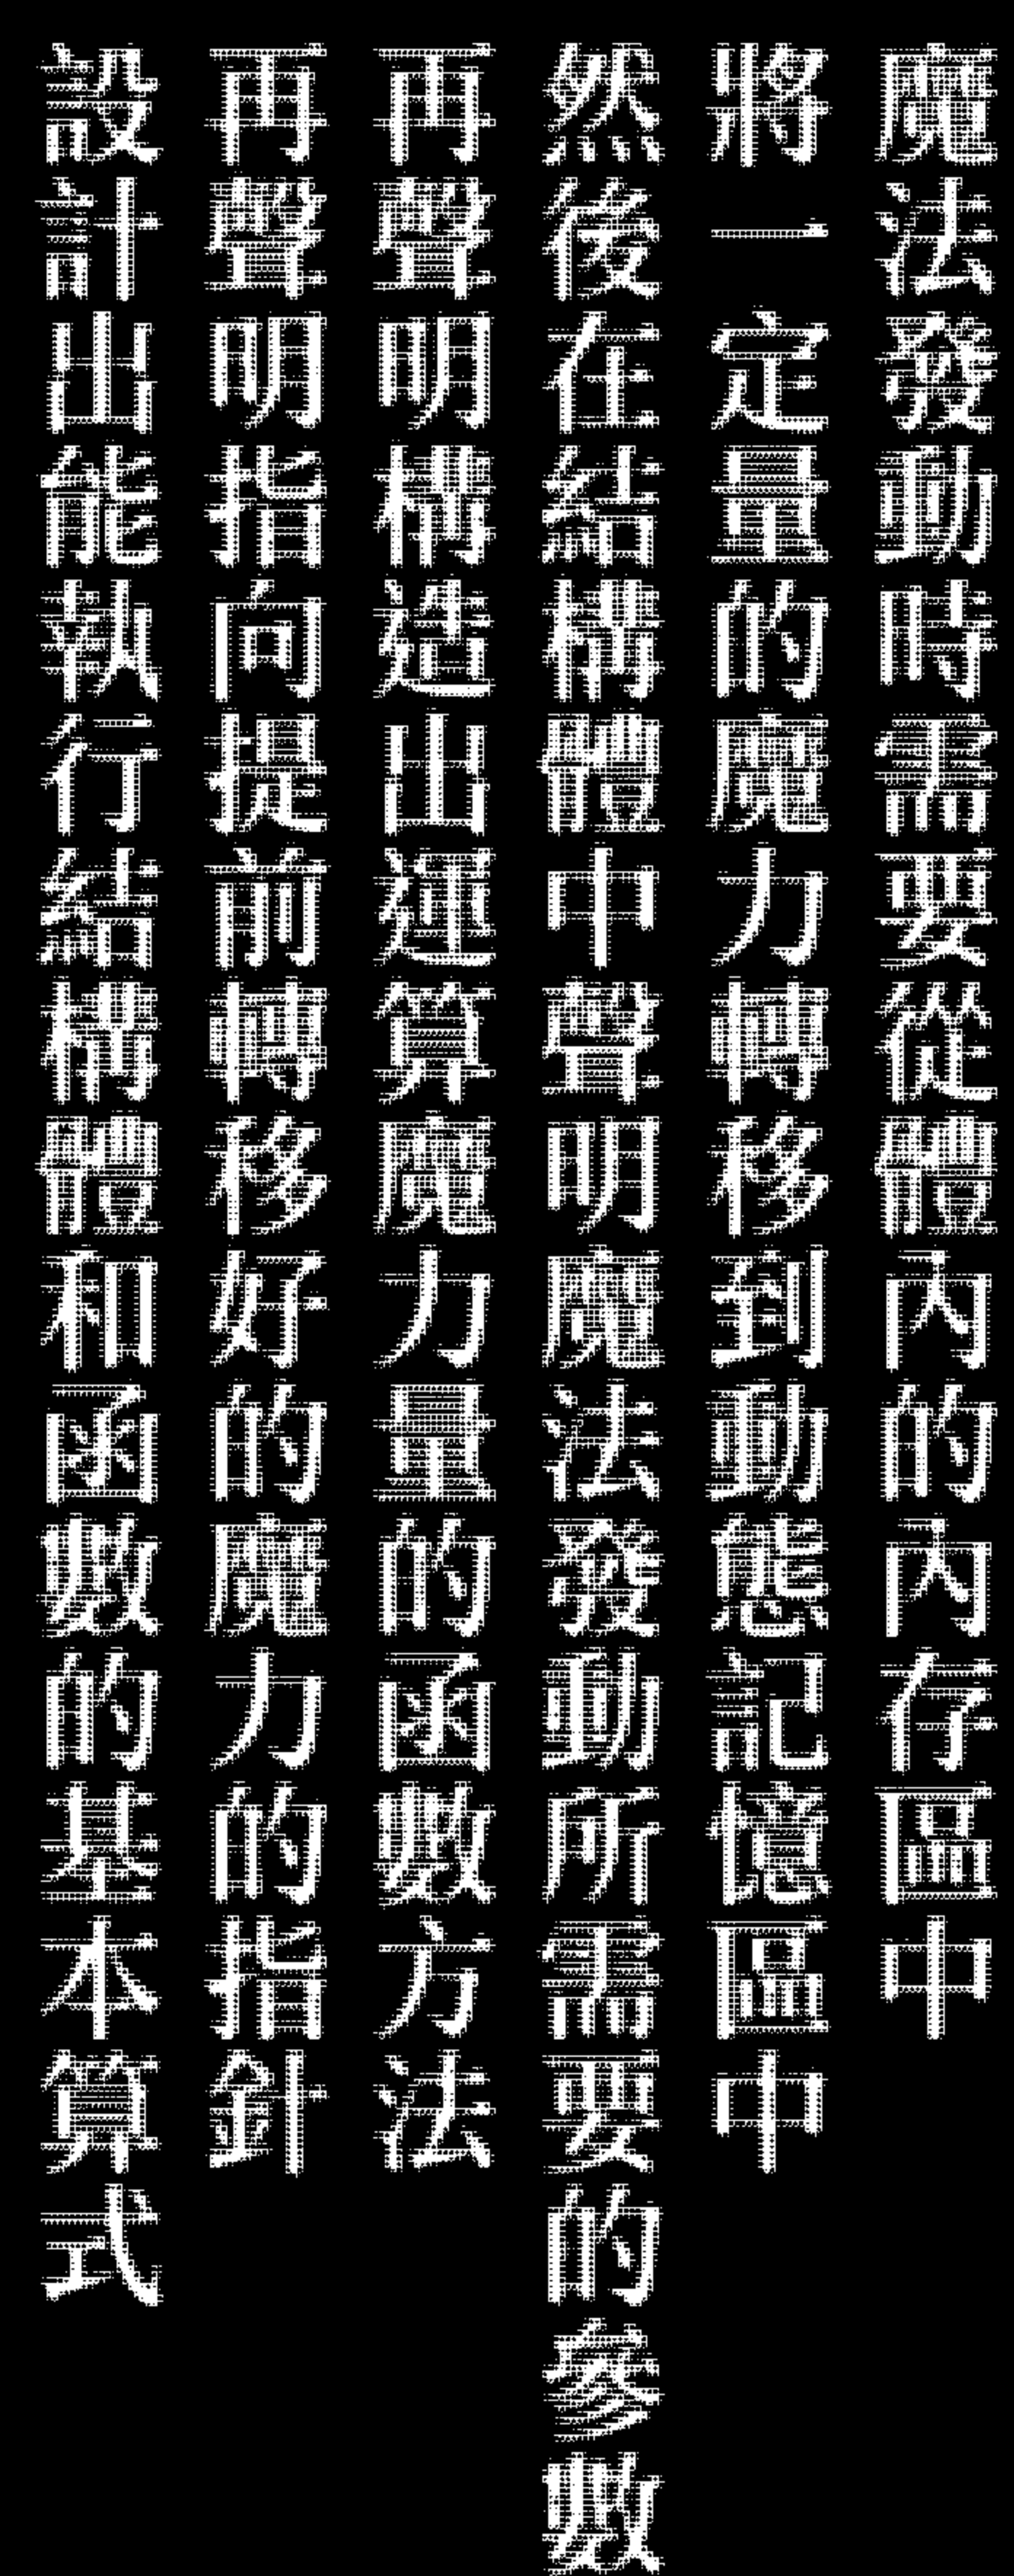 魔法發動時需要從體內的內存區中
將一定量的魔力轉移到動態記憶區中
然後在結構體中聲明魔法發動所需要的參數
再聲明構造出運算魔力量的函數方法
再聲明指向提前轉移好的魔力的指針
設計出能執行結構體和函數的基本算式